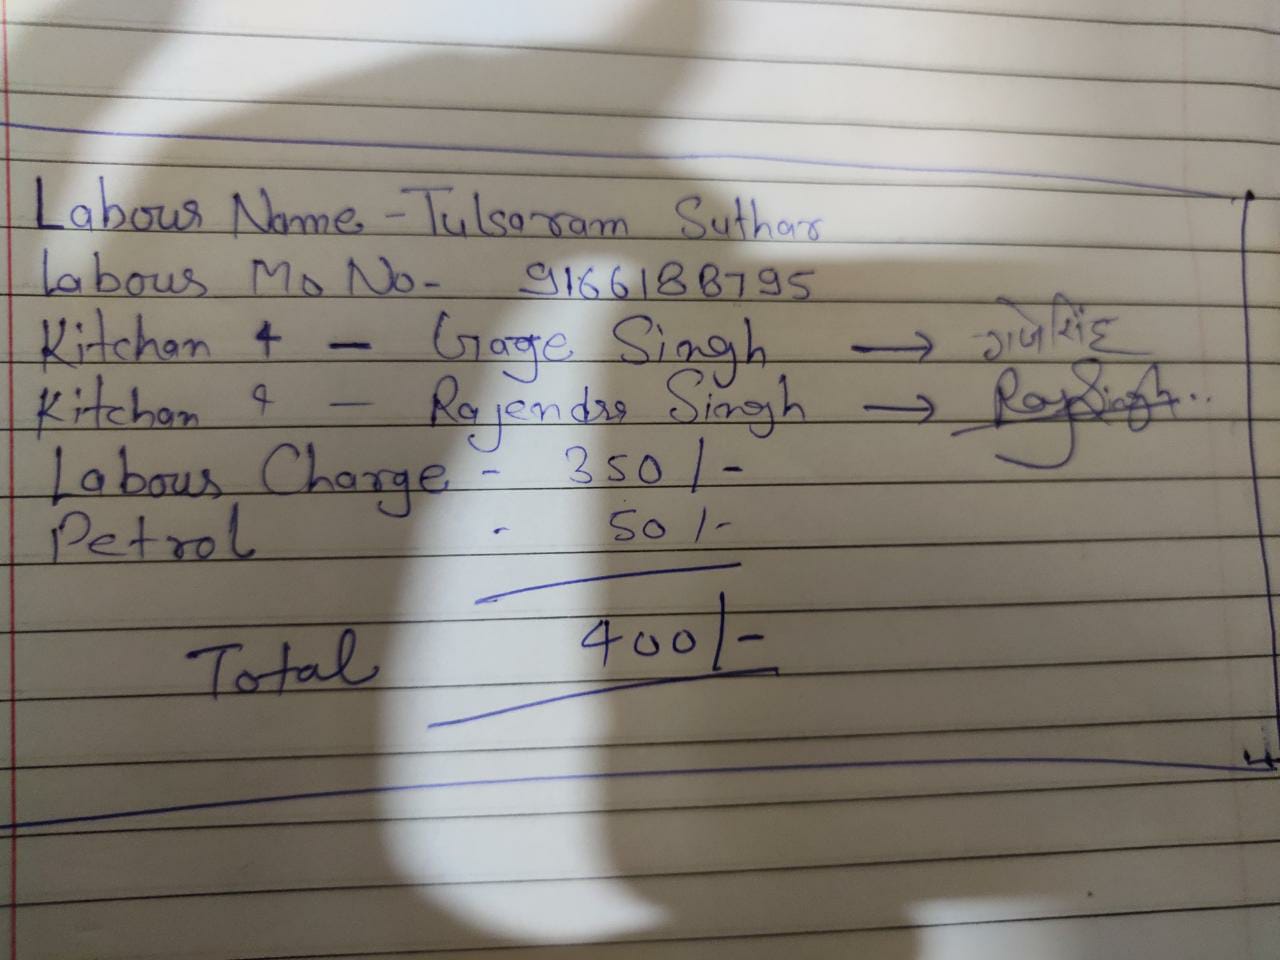 Labour Name - Tulsaram Suthar
Labour Mo No- 9166188795
Kitchan 4 - Gage Singh → गजेसिंह
Kitchan 4 - Rajendra Singh → RajSingh..
Labour Charge - 350/-
Petrol - 50/-
Total 400/-